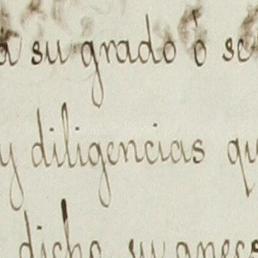 a su grado ó se
y diligencias qu
dicho su anecs